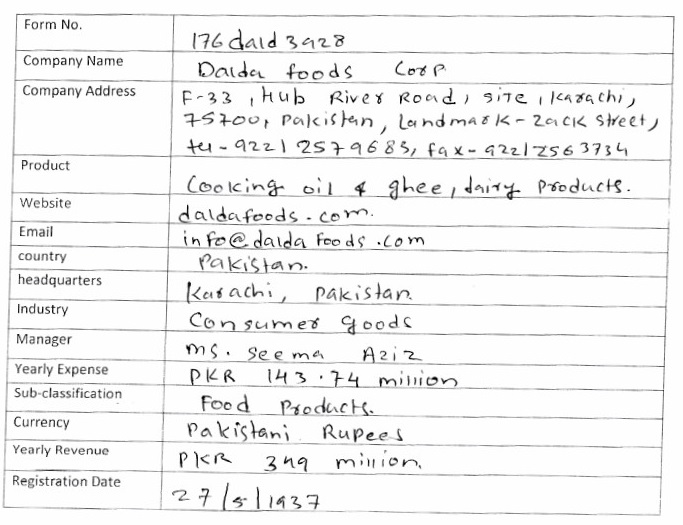 Form No. 176 dald 3928
Company Name Dalda foods Corp
Company Address F-33, Hub River Road, SITE, Karachi,
75700, Pakistan, Landmark - Zack Street,
tel - 92212579683, fax - 92212563734
Product Cooking oil & ghee, dairy products.
Website daldafoods.com.
Email info@daldafoods.com
country Pakistan.
headquarters Karachi, Pakistan.
Industry Consumer goods
Manager ms. Seema Aziz
Yearly Expense PKR 143.74 million
Sub-classification Food Products.
Currency Pakistani Rupees
Yearly Revenue PKR 349 million.
Registration Date 27/5/1937